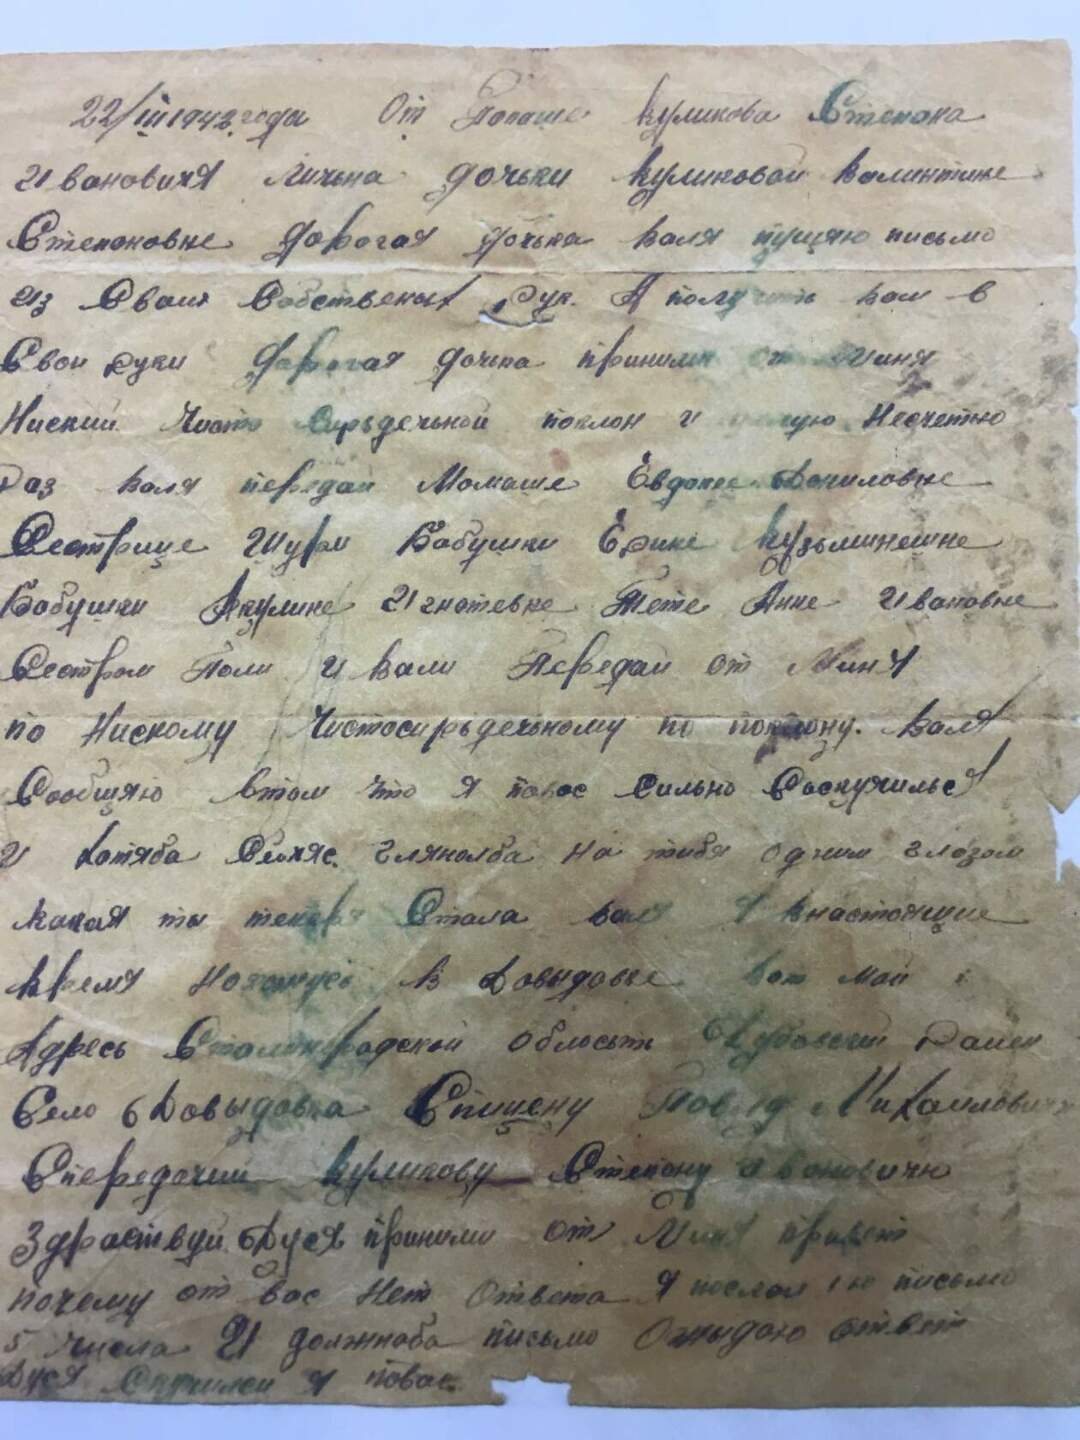 22/III 1942 года От Папаше Куликова Степана
Ивановичя Личьна дочьки Куликовой Валинтине
Степоновне Дорогая дочька Валя пущяю письмо
Из Своих Собственых Рук. А получить вам в
Свои руки Дорогая дочька прими от миня
Ниский Чисто Сирьдечьной поклон и Несчетно
Раз Валя передай Момаше Евдокее Даниловне
Сестрице Шури Бабушки Ерине Кузьминешне
Бабушки Акулине Игнотевне Тете Анне Ивановне
Сестром Поли и Вали Передай от Миня
по Нискому Чистосирьдечьному по поклону. Валя
Сообщяю втом что я повас сильно Соскучильса
И хотяба Сейчяс глянолба на тибя одним глазом
какая ты теперя Стала Валя Я внастоящие
время нахожусь в Довыдовке вот мой
Адресь Сталинградской область Дубовский Район
Село Довыдовка Спицену Михаиловичю
Спередачий Куликову Степану Ивановичю
Здраствуй Дуся прими от Миня привет
почему от вас Нет Ответа Я послал письмо
5 числа И должноба письмо Ожыдаю ответ
Дуся Скучился я повас